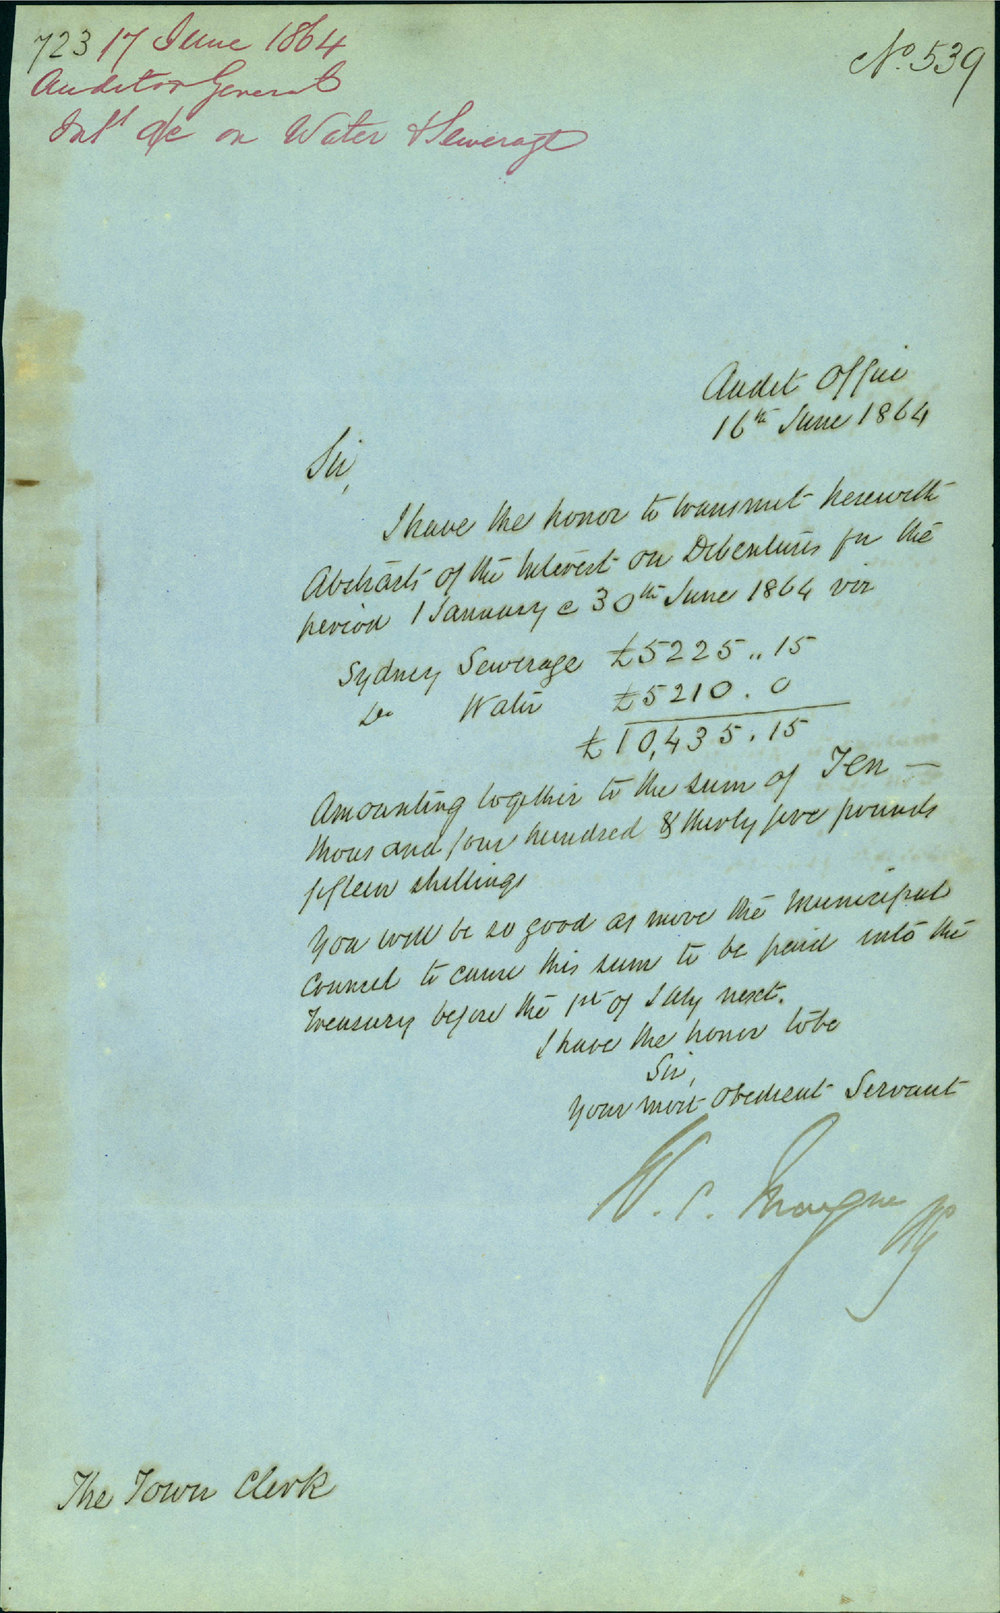 723 17 June 1864
Auditor General
Int.t a/c on Water & Sewerage
No. 539
Audit Office
16th June 1864
Sir,
I have the honor to transmit herewith
Abstracts of the Interest on Debentures for the
period 1 January @ 30th June 1864 viz
Sydney Sewerage £5225..15
Do Water £5210.0
£10,435.15
Amounting together to the sum of Ten —
thousand four hundred & thirty five pounds
fifteen shillings
You will be so good as move the Municipal
Council to cause this sum to be paid into the
Treasury before the 1st of July next.
I have the honor to be
Sir,
Your most obedient Servant
W. C.
The Town Clerk